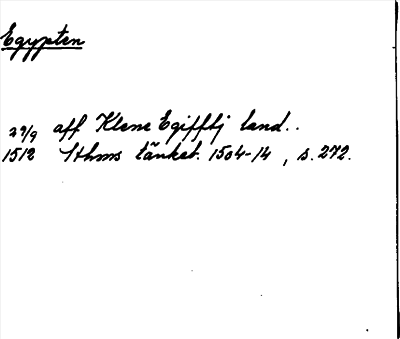 Egypten
29/9 aff Klene Egifftj land..
1512 Sthms tänkeb. 1504-14, s. 272.